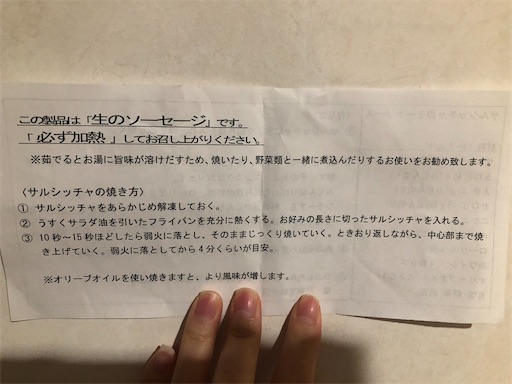 この製品は「生のソーセージ」です。
「必ず加熱」してお召し上がりください。
※茹でるとお湯に旨味が溶けだすため、焼いたり、野菜類と一緒に煮込んだりするお使いをお勧め致します。
〈サルシッチャの焼き方〉
① サルシッチャをあらかじめ解凍しておく。
② うすくサラダ油を引いたフライパンを充分に熱くする。お好みの長さに切ったサルシッチャを入れる。
③ 10秒～15秒ほどしたら弱火に落とし、そのままじっくり焼いていく。ときおり返しながら、中心部まで焼
き上げていく。弱火に落としてから4分くらいが目安。
※オリーブオイルを使い焼きますと、より風味が増します。